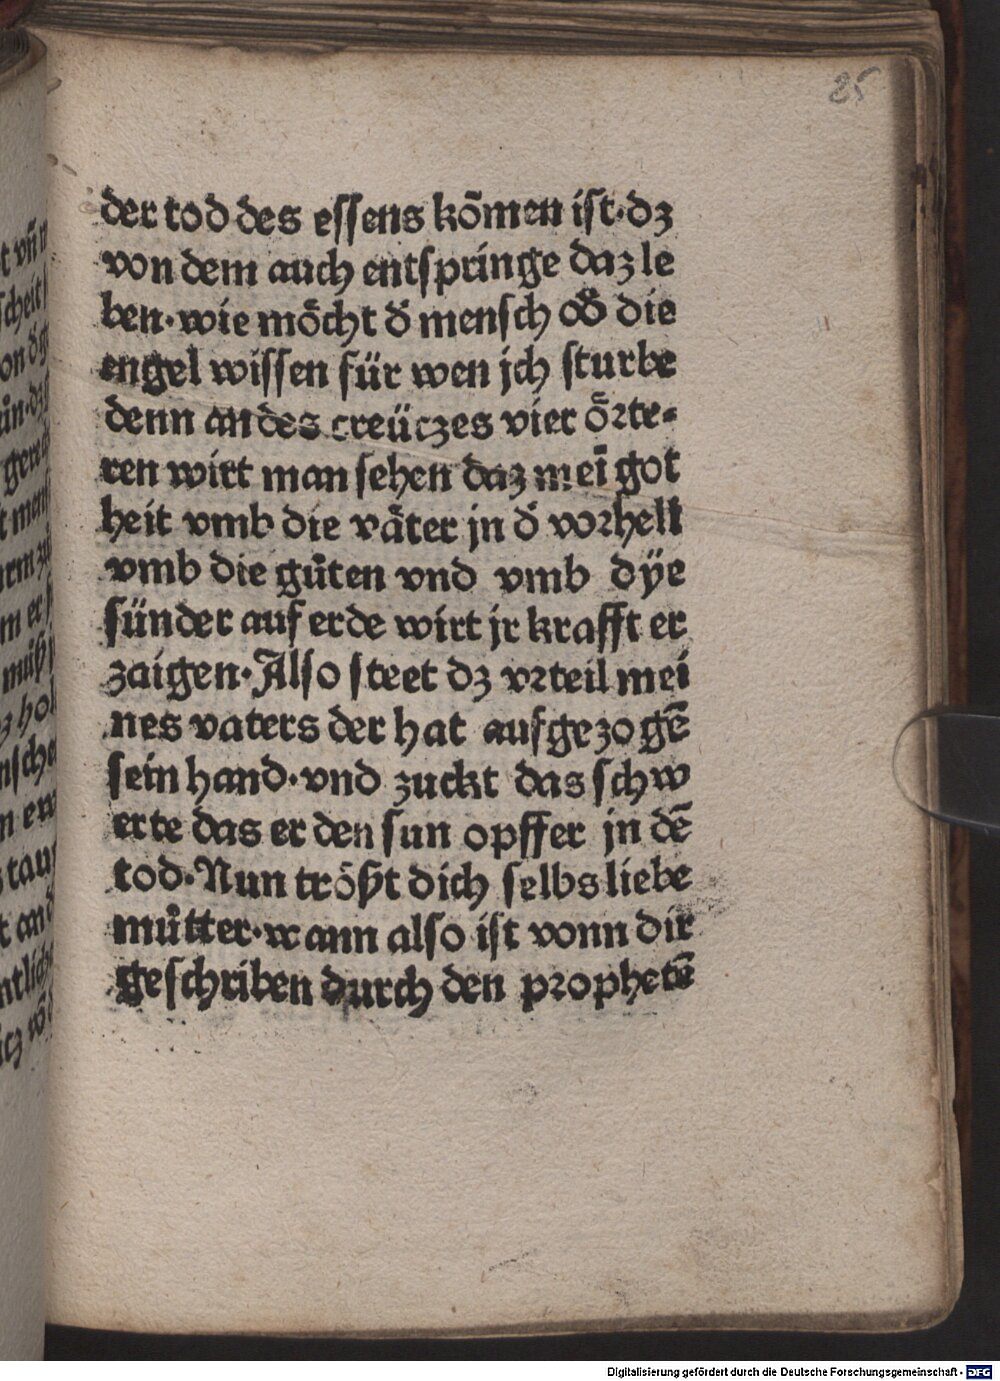 25
der tod des essens kõmen ist·dz
von dem auch entspringe daz le
ben·wie möcht d̕ mensch od̕ die
engel wissen für wen jch sturbe
denn an des creüczes vier örte-
ren wirt man sehen daz meī got
heit vmb die väter jn d̕ vorhell
vmb die gůten vnd vmb dÿe
sünder auf erde wirt jr krafft er
zaigen·Also steet dz vrteil mei
nes vaters der hat aufgezogẽ
sein hand·vnd zuckt das schw
erte das er den sun opffer jn dẽ
tod·Nun trößt dich selbs liebe
můtter·wann also ist vonn dir
geschriben durch den prophetẽ
Digitalisierung gefördert durch die Deutsche Forschungsgemeinschaft - DFG